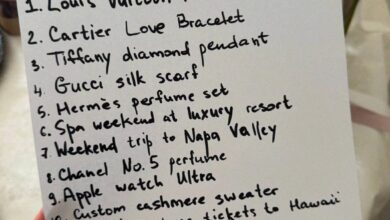 1. Louis Vuitton
2. Cartier Love Bracelet
3. Tiffany diamond pendant
4. Gucci silk scarf
5. Hermès perfume set
6. Spa weekend at luxury resort
7. Weekend trip to Napa Valley
8. Chanel No. 5 perfume
9. Apple watch Ultra
10. Custom cashmere sweater
tickets to Hawaii